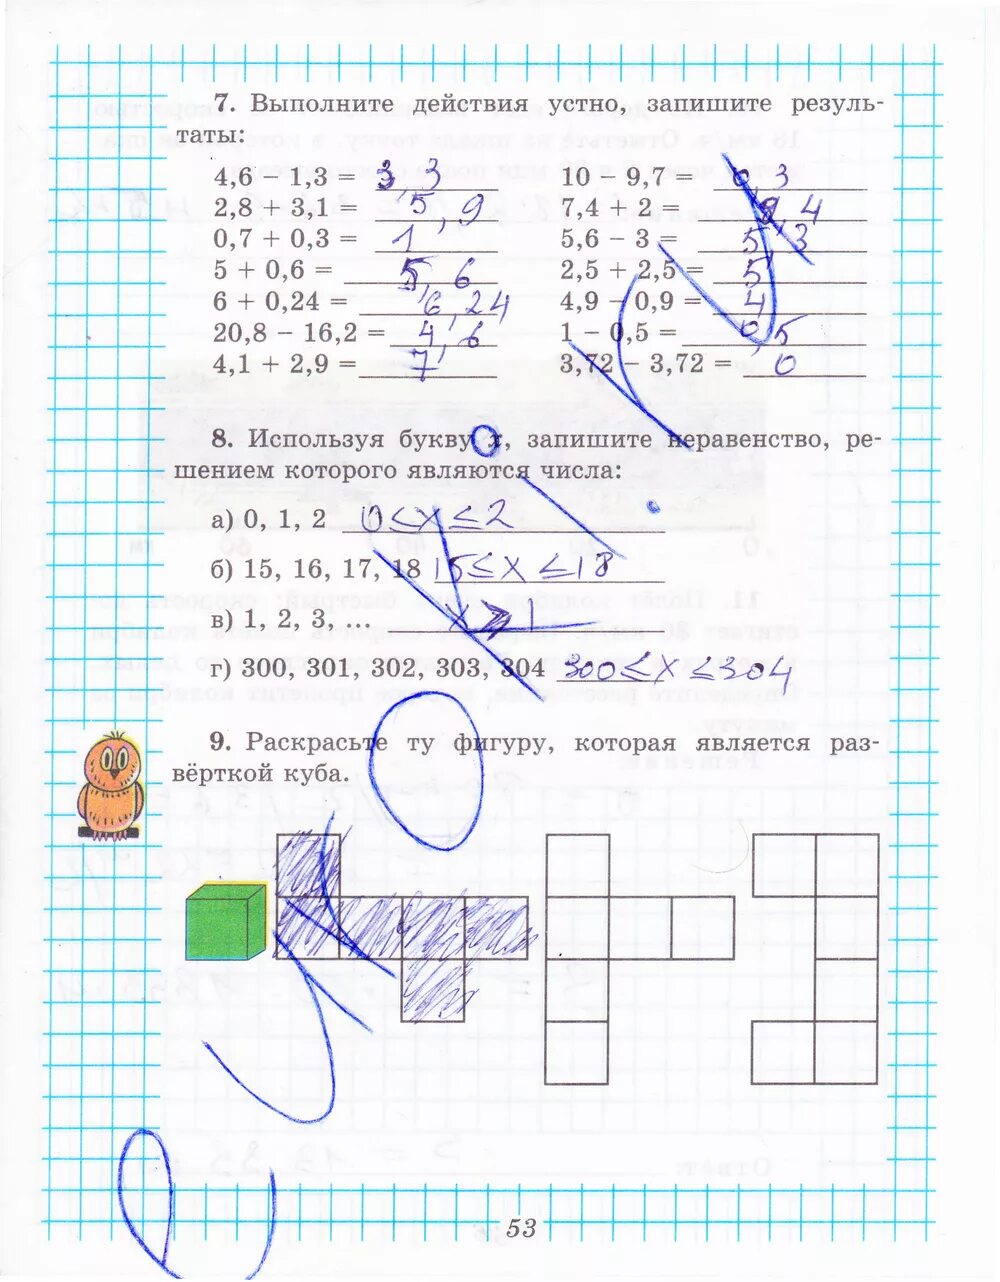 7. Выполните действия устно, запишите резуль-
таты:
4,6 − 1,3 = 3,3
10 − 9,7 = 0,3
2,8 + 3,1 = 5,9
7,4 + 2 = 9,4
0,7 + 0,3 = 1
5,6 − 3 = 5,3
5 + 0,6 = 5,6
2,5 + 2,5 = 5
6 + 0,24 = 6,24
4,9 − 0,9 = 4
20,8 − 16,2 = 4,6
1 − 0,5 = 0,5
4,1 + 2,9 = 7
3,72 − 3,72 = 0
8. Используя букву x, запишите неравенство, ре-
шением которого являются числа:
а) 0, 1, 2 0 ≤ x ≤ 2
б) 15, 16, 17, 18 15 ≤ x ≤ 18
в) 1, 2, 3, ...
г) 300, 301, 302, 303, 304 300 ≤ x ≤ 304
9. Раскрасьте ту фигуру, которая является раз-
вёрткой куба.
53